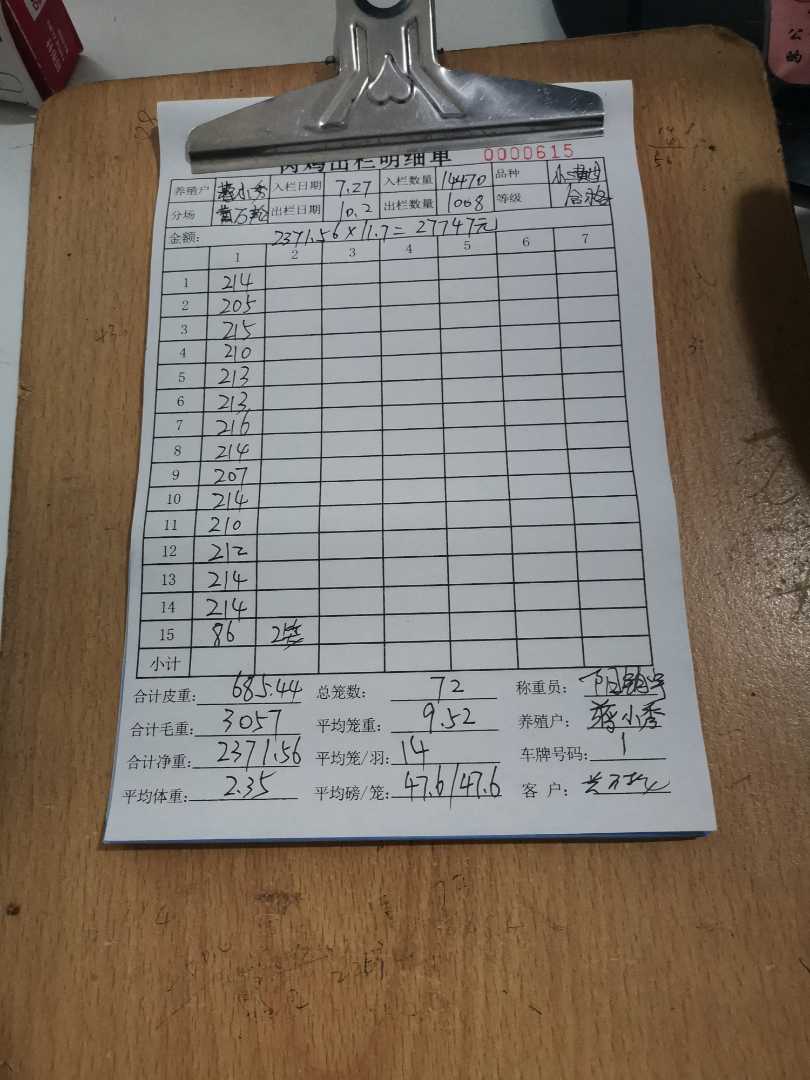 公
的
肉鸡出栏明细单 0000615
养殖户 蒋小秀 入栏日期 7.27 入栏数量 14470 品种
分场 黄万松 出栏日期 10.2 出栏数量 1008 等级 合格
金额: 2371.56 × 11.7 = 27747元
1 2 3 4 5 6 7
1 214
2 205
3 215
4 210
5 213
6 213
7 216
8 214
9 207
10 214
11 210
12 212
13 214
14 214
15 86
小计
合计皮重: 685.44 总笼数: 72 称重员:
合计毛重: 3057 平均笼重: 9.52 养殖户: 蒋小秀
合计净重: 2371.56 平均笼/羽: 14 车牌号码: 1
平均体重: 2.35 平均磅/笼: 47.6/47.6 客 户: